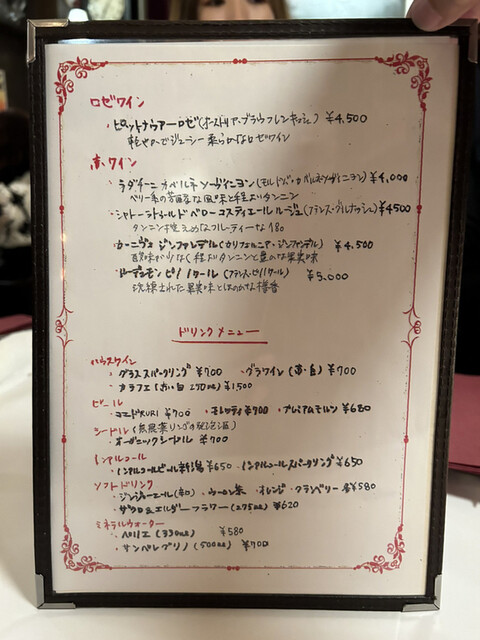 ロゼワイン
・ピットナウアーロゼ(オーストリア・ブラウフレンキッシュ) ¥4,500
軽やかでジューシー 柔らかなロゼワイン
赤ワイン
・ラダチーニ カベルネソーヴィニヨン(モルドバ・カベルネソーヴィニヨン) ¥4,000
ベリー系の芳醇な風味と程よいタンニン
・シャトー ラトゥールド ベロー コスティエール ルージュ(フランス・グルナッシュ) ¥4500
タンニン控えめなフルーティーな
・カーニヴォ ジンファンデル(カリフォルニア・ジンファンデル) ¥4,500
酸味が少なく程よいタンニンと豊かな果実味
ピノノワール(フランス・ピノノワール) ¥5,000
洗練された果実味とほのかな樽香
ドリンクメニュー
ハウスワイン
・グラススパークリング ¥700 ・グラスワイン(赤・白) ¥700
・カラフェ(赤い白 250ml) ¥1,500
ビール
・コエドKURI ¥700 ・モレッティ ¥700 ・プレミアムモルツ ¥680
シードル(無農薬リンゴの発泡酒)
・オーガニックシードル ¥700
ノンアルコール
・ノンアルコールビール ¥650 ・ノンアルコールスパークリング ¥650
ソフトドリンク
・ジンジャーエール(辛口) ・ウーロン茶 ・オレンジ ・クランベリー 各¥580
・ザクロ&エルダーフラワー(275ml) ¥620
ミネラルウォーター
・ペリエ(330ml) ¥580
・サンペレグリノ(500ml) ¥700